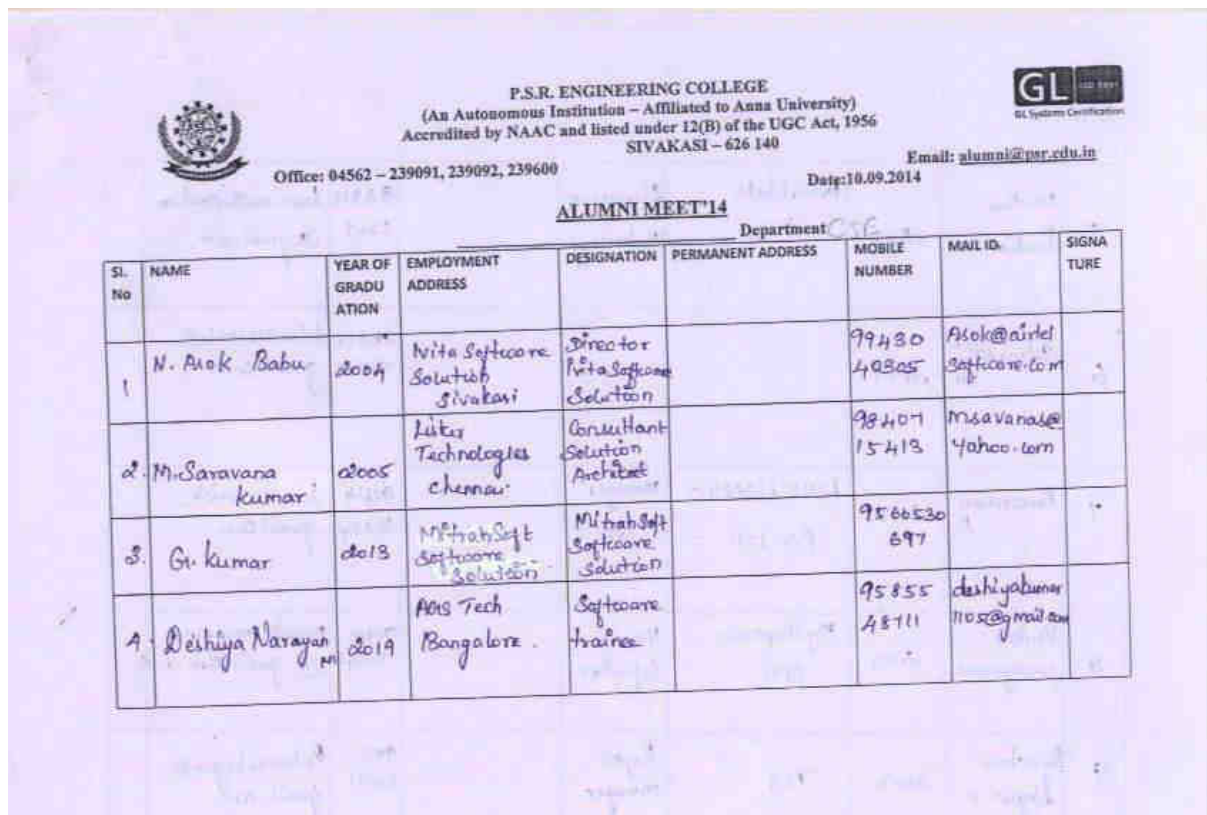 P.S.R. ENGINEERING COLLEGE
(An Autonomous Institution – Affiliated to Anna University)
Accredited by NAAC and listed under 12(B) of the UGC Act, 1956
SIVAKASI – 626 140
GL
GL Systems Certification
Office: 04562 – 239091, 239092, 239600
Email: alumni@psr.edu.in
Date:10.09.2014
ALUMNI MEET'14
Department CSE
Sl. No
NAME
YEAR OF GRADU ATION
EMPLOYMENT ADDRESS
DESIGNATION
PERMANENT ADDRESS
MOBILE NUMBER
MAIL ID.
SIGNA TURE
1
N. Asok Babu
2004
Nita Software
Solution
Sivakasi
Director
Nita Software
Solution
99430
Asok@airtel
software.com
2. M. Saravana
kumar
2005
Lister
Technologies
Chennai
Consultant
Solution
Architect
98407
15413
msavanas@
yahoo.com
3. G. Kumar
2013
MitrahSoft
Software
Solution
MitrahSoft
Software
Solution
9566530
697
4. Deshiya Narayan
Tech
Bangalore.
Software
trainee
95855
48711
deshiyakumar
1105@gmail.com